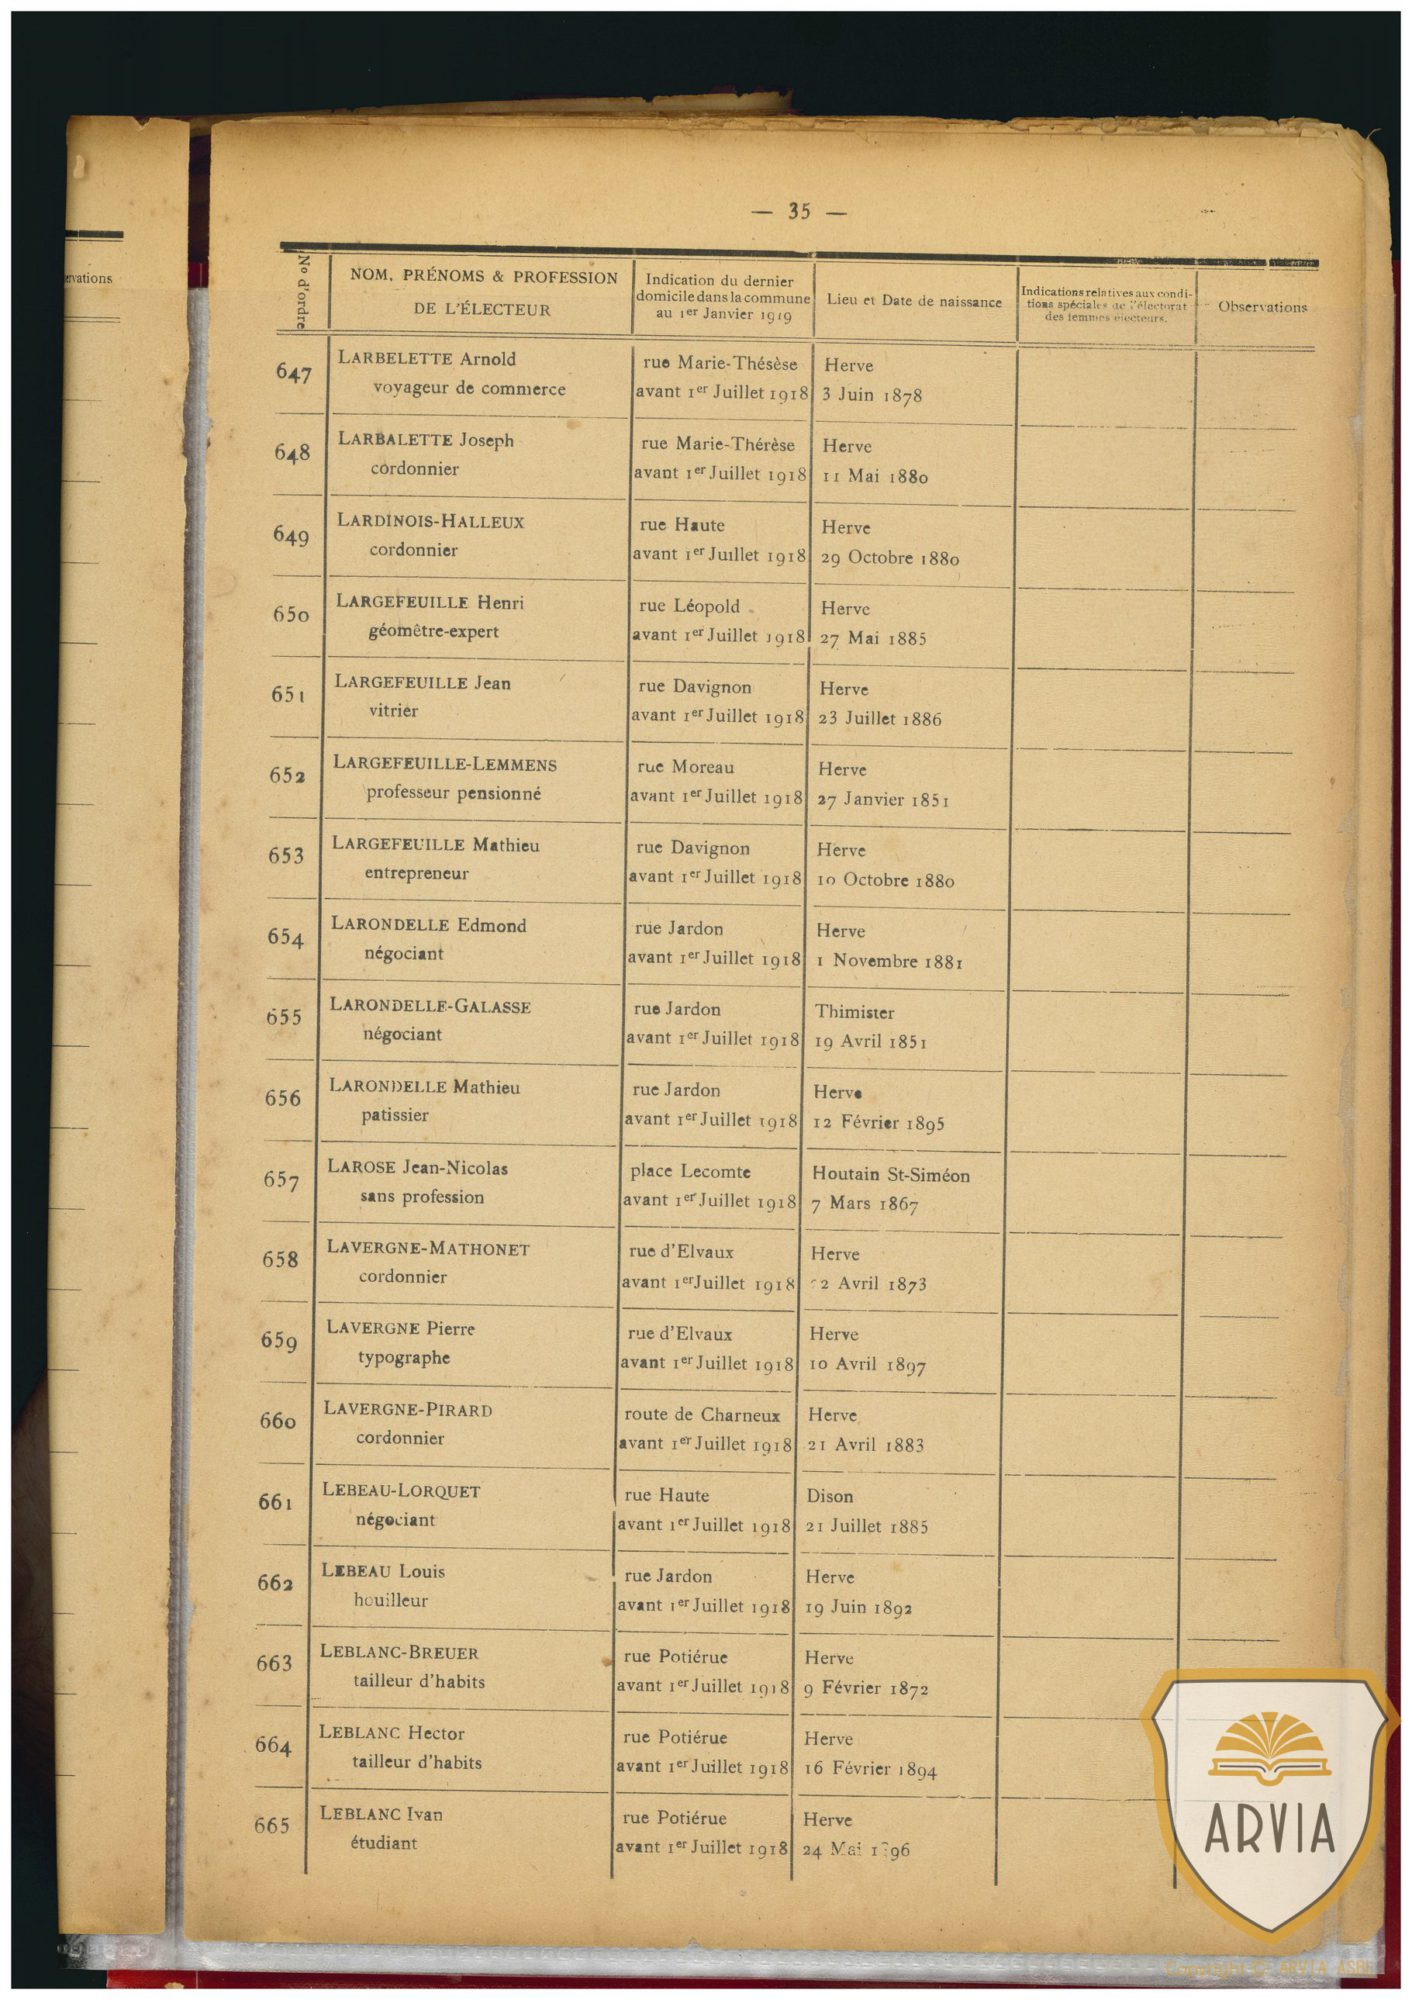 — 35 —
ervations
No d'ordre
NOM, PRÉNOMS & PROFESSION
DE L'ÉLECTEUR
Indication du dernier
domicile dans la commune
au 1er Janvier 1919
Lieu et Date de naissance
Indications relatives aux condi-
tions spéciales de l'électorat
des femmes électeurs.
Observations
647 LARBELETTE Arnold rue Marie-Thésèse Herve
voyageur de commerce avant 1er Juillet 1918 3 Juin 1878
648 LARBALETTE Joseph rue Marie-Thérèse Herve
cordonnier avant 1er Juillet 1918 11 Mai 1880
649 LARDINOIS-HALLEUX rue Haute Herve
cordonnier avant 1er Juillet 1918 29 Octobre 1880
650 LARGEFEUILLE Henri rue Léopold Herve
géomêtre-expert avant 1er Juillet 1918 27 Mai 1885
651 LARGEFEUILLE Jean rue Davignon Herve
vitrier avant 1er Juillet 1918 23 Juillet 1886
652 LARGEFEUILLE-LEMMENS rue Moreau Herve
professeur pensionné avant 1er Juillet 1918 27 Janvier 1851
653 LARGEFEUILLE Mathieu rue Davignon Herve
entrepreneur avant 1er Juillet 1918 10 Octobre 1880
654 LARONDELLE Edmond rue Jardon Herve
négociant avant 1er Juillet 1918 1 Novembre 1881
655 LARONDELLE-GALASSE rue Jardon Thimister
négociant avant 1er Juillet 1918 19 Avril 1851
656 LARONDELLE Mathieu rue Jardon Herve
patissier avant 1er Juillet 1918 12 Février 1895
657 LAROSE Jean-Nicolas place Lecomte Houtain St-Siméon
sans profession avant 1er Juillet 1918 7 Mars 1867
658 LAVERGNE-MATHONET rue d'Elvaux Herve
cordonnier avant 1er Juillet 1918 2 Avril 1873
659 LAVERGNE Pierre rue d'Elvaux Herve
typographe avant 1er Juillet 1918 10 Avril 1897
660 LAVERGNE-PIRARD route de Charneux Herve
cordonnier avant 1er Juillet 1918 21 Avril 1883
661 LEBEAU-LORQUET rue Haute Dison
négociant avant 1er Juillet 1918 21 Juillet 1885
662 LEBEAU Louis rue Jardon Herve
houilleur avant 1er Juillet 1918 19 Juin 1892
663 LEBLANC-BREUER rue Potiérue Herve
tailleur d'habits avant 1er Juillet 1918 9 Février 1872
664 LEBLANC Hector rue Potiérue Herve
tailleur d'habits avant 1er Juillet 1918 16 Février 1894
665 LEBLANC Ivan rue Potiérue Herve
étudiant avant 1er Juillet 1918 24 Mai
ARVIA
Copyright © ARVIA ASBL